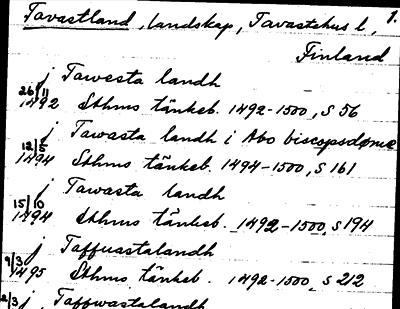 Tavastland, landskap, Tavastehus l, 1.
Finland
j Tawesta landh
26/11
1492 Sthms tänkeb. 1492-1500, S 56
j Tawasta landh i Abo biscopsdøme
12/5
1494 Sthms tänkeb. 1494-1500, S 161
j Tawasta landh
15/10
1494 Sthms tänkeb. 1492-1500, S 194
j Taffuastalandh
9/3
1495 Sthms tänkeb. 1492-1500, S 212
2/3 j Taffwastalandh